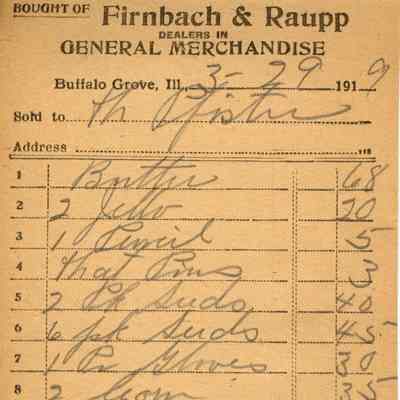 BOUGHT OF Firnbach & Raupp
DEALERS IN
GENERAL MERCHANDISE
Buffalo Grove, Ill., 3-29 1919
Sold to Th Pfister
Address
1 Butter 68
2 2 Jello 20
3 1 Pencil 5
4 Hat Pins 3
5 2 Pk Seeds 40
6 6 pk Seeds 45
7 1 Pr Gloves 30
8 2 Corn 35